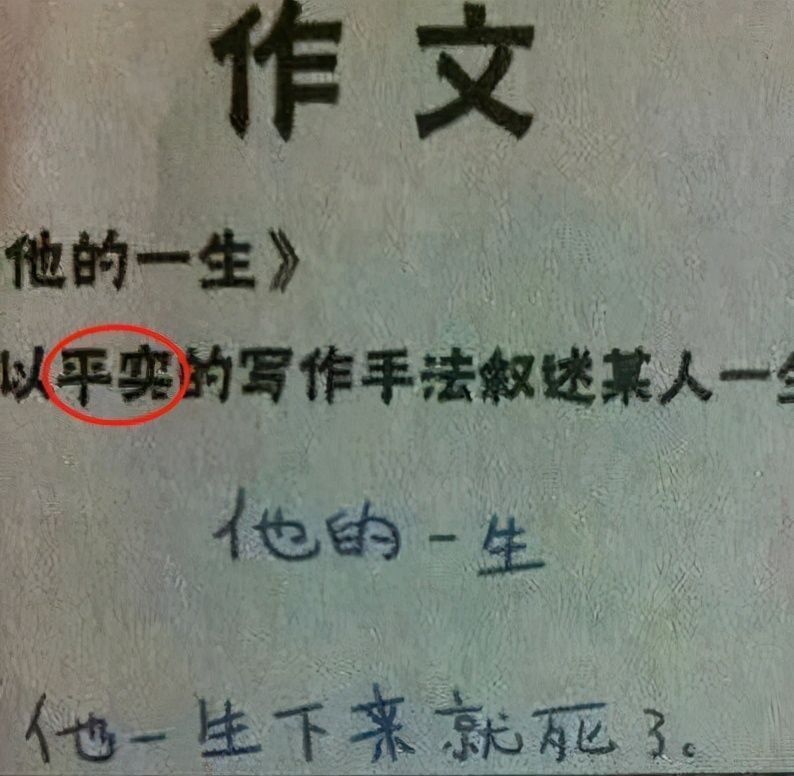 作文
他的一生》
以平实的写作手法叙述某人一生
他的一生
他一生下来就死了。